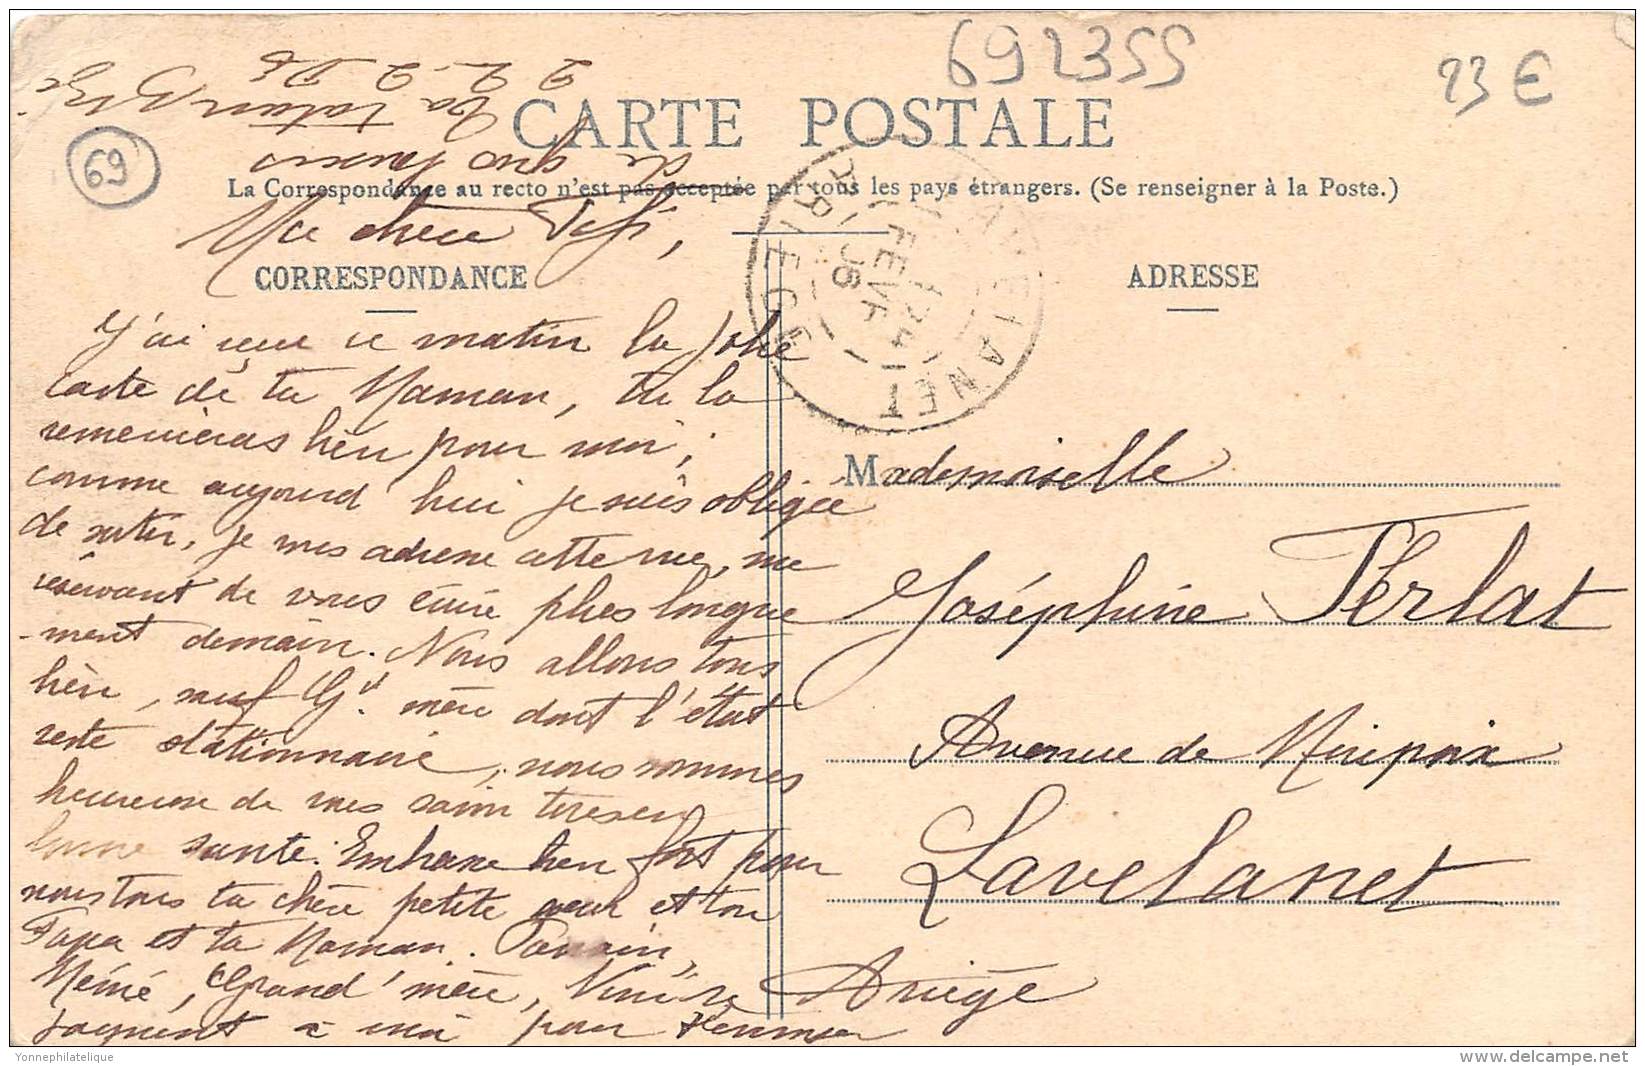 692355
23 €
69
CARTE POSTALE
La Correspondance au recto n'est pas acceptée par tous les pays étrangers. (Se renseigner à la Poste.)
CORRESPONDANCE
ADRESSE
LAVELANET
ARIEGE
FEVR
08
Ma chère Fifi,
J'ai reçu ce matin la jolie
carte de ta Maman, tu la
remercieras bien pour moi;
comme aujourd'hui je suis obligée
de sortir, je mes adresse cette vue, me
réservant de vous écrire plus longue
-ment demain. Nous allons tous
bien, sauf Gd. mère dont l'état
reste stationnaire, nous sommes
heureuse de vous savoir tous en
bonne santé. Embrasse bien fort pour
nous tous ta chère petite sœur et ton
Papa et ta Maman. Parrain,
Mémé, Grand'mère,
joignent à moi pour t'envoyer
de gros baisers
Ta tatan
Mademoiselle
Joséphine Ferlat
Avenue de Mirepoix
Lavelanet
Ariège
Yonnephilatelique
www.delcampe.net